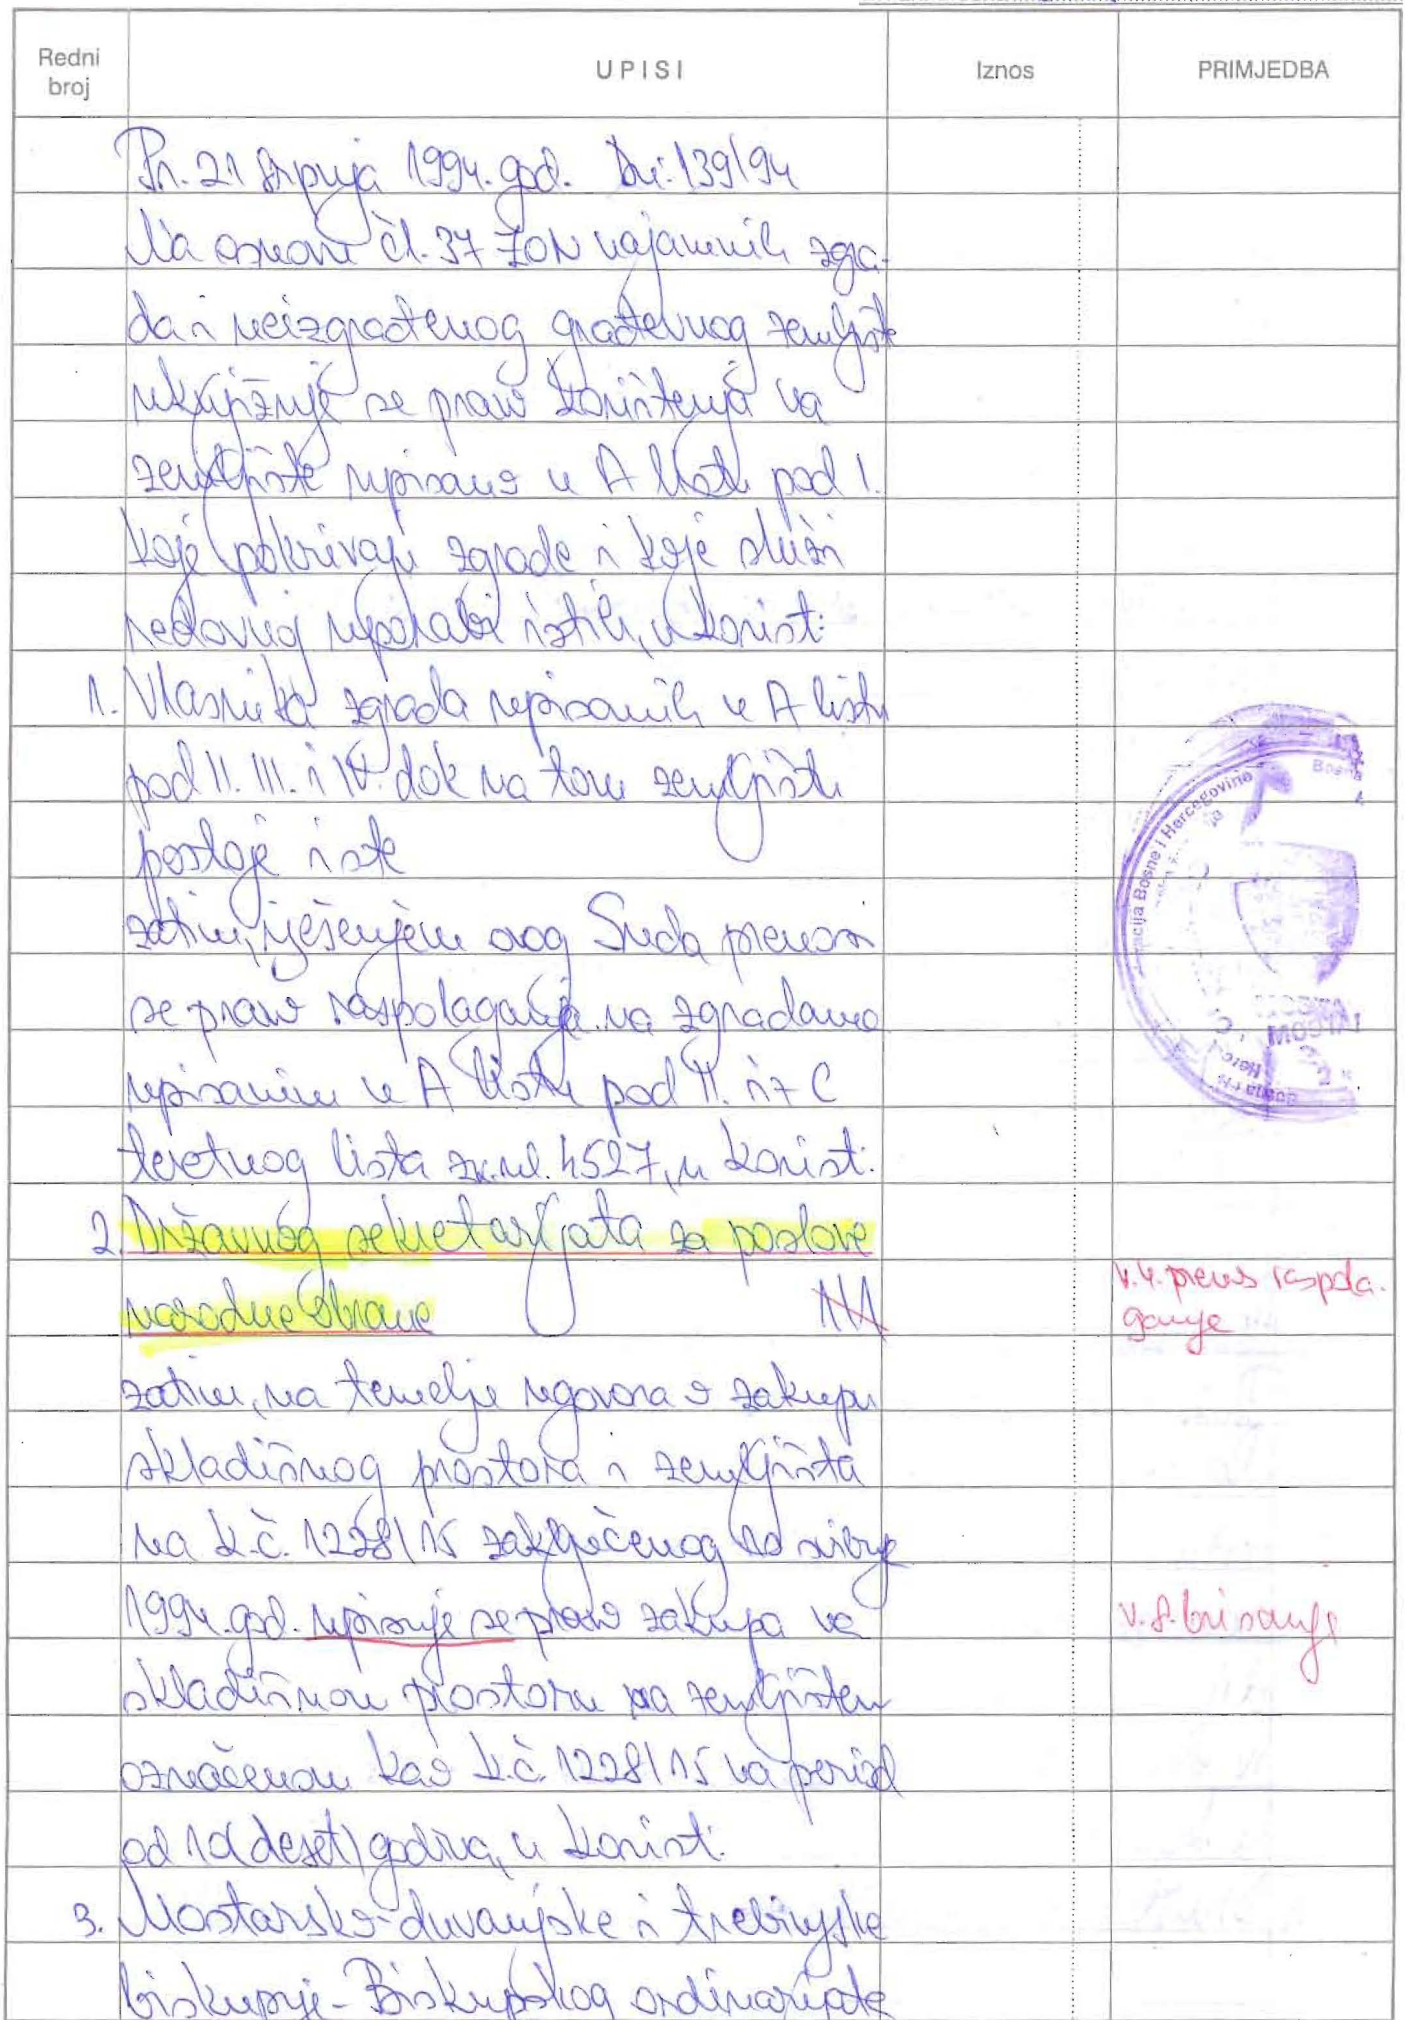 Redni broj
UPISI
Iznos
PRIMJEDBA
Pr. 21 srpnja 1994. god. Dn: 139/94
Na osnovu čl. 37 ZON najamnih zgra-
da i neizgrađenog građevnog zemljišta
uknjižuje se pravo korištenja na
zemljište upisano u A listu pod I.
koje pokrivaju zgrade i koje služi
redovnoj uporabi istih, u korist:
1. Vlasnika zgrada upisanih u A listu
pod II. III. i IV. dok na tom zemljištu
postoje iste
zatim, rješenjem ovog Suda prenosi
se pravo raspolaganja na zgradama
upisanim u A listu pod II. iz C
teretnog lista zk.ul. 4527, u korist:
2. Državnog sekretarijata za poslove
narodne obrane
v. 4. prenos raspola-
ganje
zatim, na temelju ugovora o zakupu
skladišnog prostora i zemljišta
na k.č. 1228/15 zaključenog 20 svibnja
1994. god. upisuje se pravo zakupa na
v. 8. brisanje
skladišnom prostoru na zemljištu
označenom kao k.č. 1228/15 na period
od 10 (deset) godina, u korist:
3. Mostarsko-duvanjske i trebinjske
biskupije - Biskupskog ordinarijata
Bosne i Hercegovine